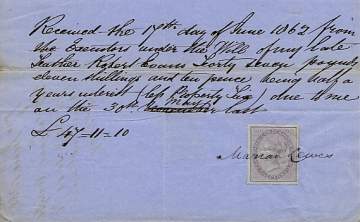 Received the 17th day of June 1862 from
the Executors under the Will of my late
Father Robert Evans Forty seven pounds
eleven shillings and ten pence being half a
years interest (less Property Tax) due to me
on the 30th May last
£ 47-11-10
Marian Lewes